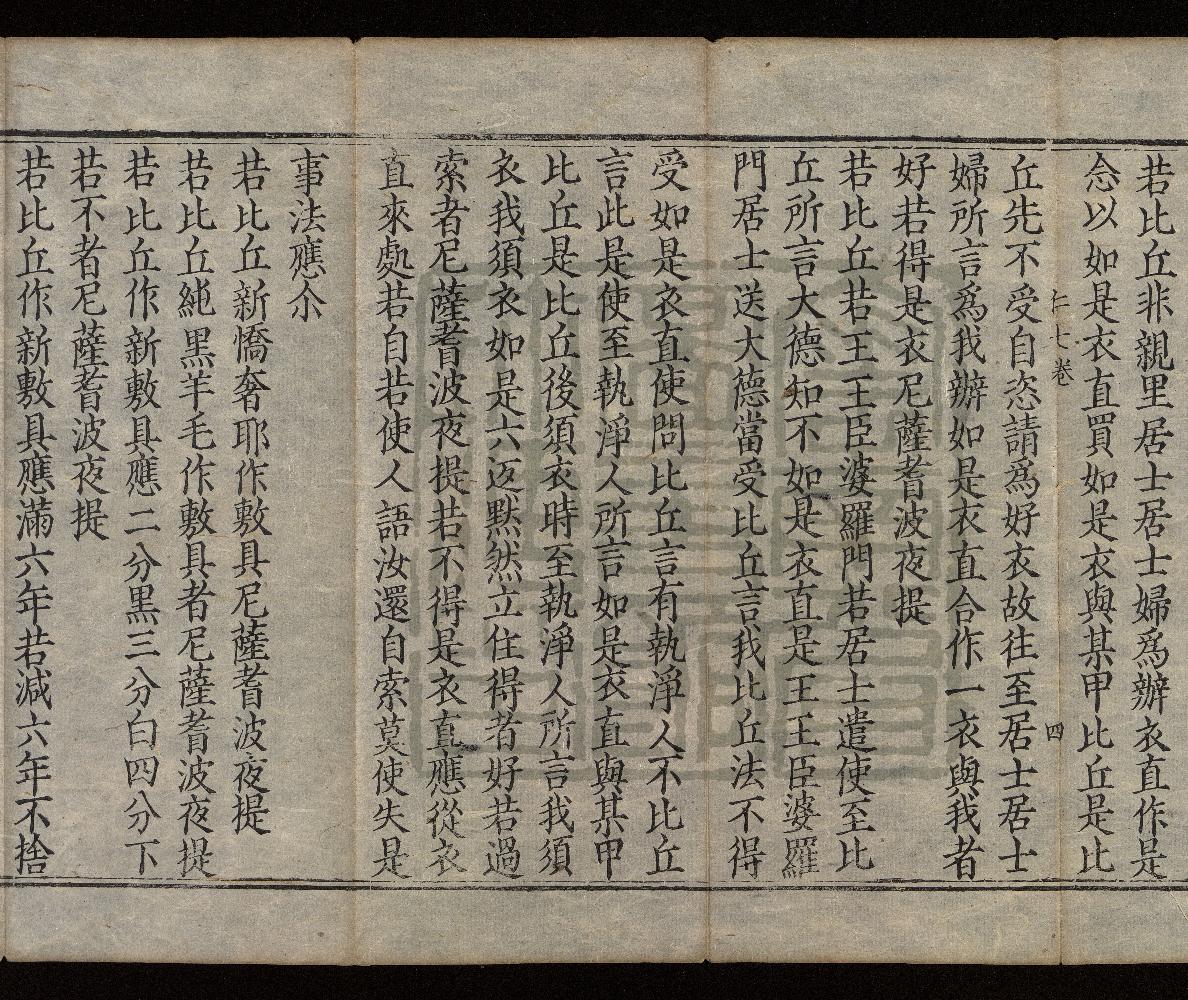 若比丘非親里居士居士婦爲辦衣直作是
念以如是衣直買如是衣與某甲比丘是比
仁七卷 四
丘先不受自恣請爲好衣故往至居士居士
婦所言爲我辦如是衣直合作一衣與我者
好若得是衣尼薩耆波夜提
若比丘若王王臣婆羅門若居士遣使至比
丘所言大德知不如是衣直是王王臣婆羅
門居士送大德當受比丘言我比丘法不得
受如是衣直使問比丘言有執淨人不比丘
言此是使至執淨人所言如是衣直與某甲
比丘是比丘後須衣時至執淨人所言我須
衣我須衣如是六返默然立住得者好若過
索者尼薩耆波夜提若不得是衣直應從衣
直來處若自若使人語汝還自索莫使失是
事法應尒
若比丘新憍奢耶作敷具尼薩耆波夜提
若比丘純黑羊毛作敷具者尼薩耆波夜提
若比丘作新敷具應二分黑三分白四分下
若不者尼薩耆波夜提
若比丘作新敷具應滿六年若減六年不捨